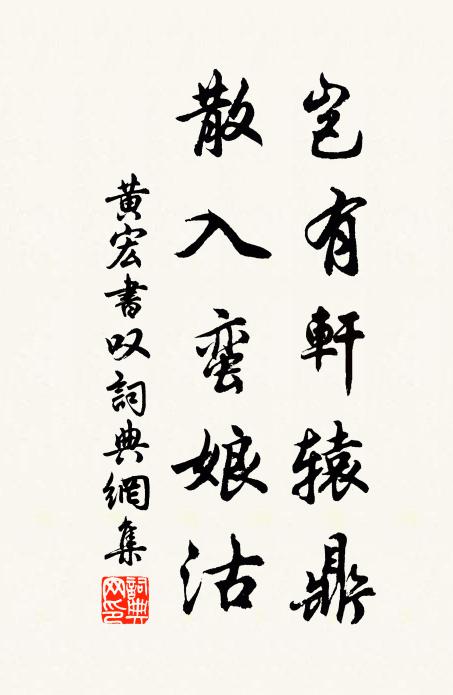 岂有軒辕鼎
散入蛮娘沽
黃宏書叹詞典網集
詞典网印